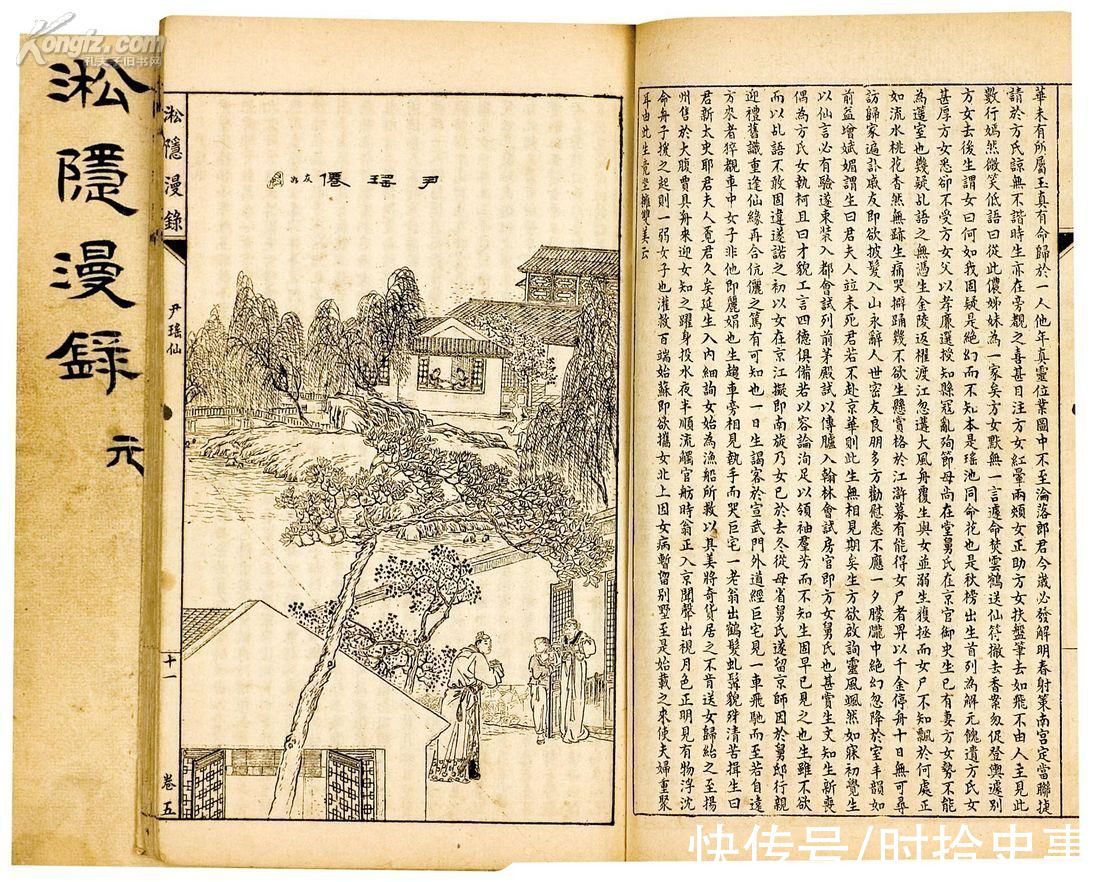 Kongfz.com
孔夫子旧书网
華未有所屬玉真有命歸於一人他年真靈位業圖中不至淪落郎君今歲必發解明春射策南宮定當聯捷
請於方氏諒無不諧時生亦在旁觀之喜甚目注方女紅暈兩頰女正助方女扶盤筆去如飛不由人主見此
數行嫣然微笑低語曰從此儂姊妹為一家矣方女默無一言遽命焚雲鶴送仙符撤去香案匆促登輿遽別
方女去後生謂女曰何如我固疑是絕幻而不知本是瑤池同命花也是秋榜出生首列為解元餽遺方氏女
甚厚方女悉卻不受方女父以孝廉選授知縣寇亂殉節母尚在堂舅氏在京官御史生已有妻方女勢不能
為簉室也幾疑乩語之無憑生金陵返櫂渡江忽遘大風舟覆生與女並溺生獲拯而女尸不知飄於何處正
如流水桃花杳然無跡生痛哭擗踊幾不欲生懸賞格於江滸募有能得女尸者畀以千金停舟十日無可尋
訪歸家遍訃戚友即欲披髮入山永辭人世密友良朋多方勸慰悉不應一夕朦朧中絕幻忽降於室丰韻如
前益增斌媚謂生曰君夫人並未死君若不赴京華則此生無相見期矣生方欲啟詢靈風颯然如寐初覺生
以仙言必有驗遂束裝入都會試列前茅殿試以傳臚入翰林會試房官即方女舅氏也甚賞生文知生新喪
偶為方氏女執柯且曰才貌工言四德俱備若以容論洵足以領袖羣芳而不知生固早已見之也生雖不欲
而以乩語不敢固違遂諾之初以女在京江擬即南旋乃女已於去冬從母省舅氏遂留京師因於舅邸行親
迎禮舊識重逢仙緣再合伉儷之篤有可知也一日生謁客於宣武門外道經巨宅見一車飛馳而至若自遠
方來者猝覩車中女子非他即麗娟也生趨車旁相見執手而哭巨宅一老翁出鶴髮虬髯貌殊清苦揖生曰
君新太史耶君夫人覓君久矣延生入內細詢女始為漁船所救以具美將奇貨居之不肯送女歸紿之至揚
州售於大腹賈具舟來迎女知之躍身投水夜半順流觸官舫時翁正入京聞聲出視月色正明見有物浮沈
命舟子援之起則一弱女子也灌救百端始蘇即欲攜女北上因女病暫留別墅至是始載之來使夫婦重聚
耳由此生竟坐擁雙美云
尹瑤僊
淞隱漫錄
尹瑤仙
十一
卷五
淞隱漫錄
元
快传号/时拾史事